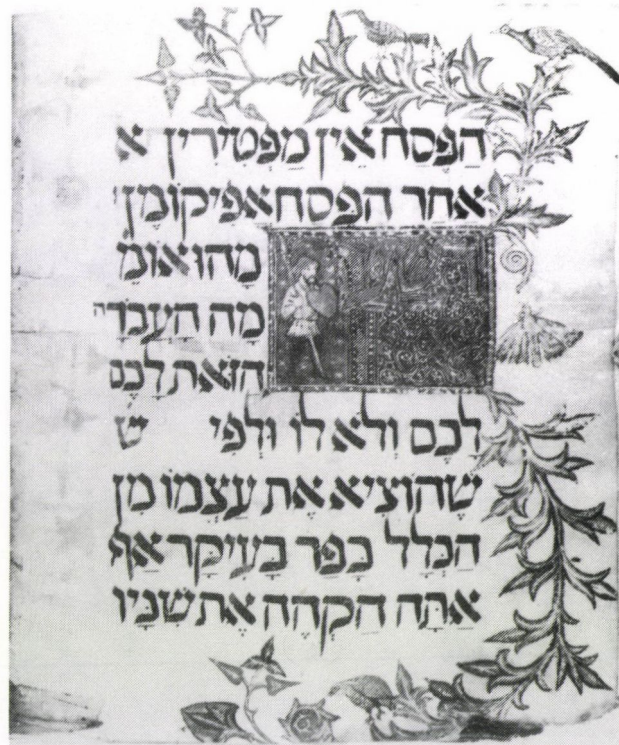 הַפֶּסַח אֵין מַפְטִירִין א
אַחַר הַפֶּסַח אֲפִיקוֹמָן
רשע
מָה הוּא אוֹמֵ
מָה הָעֲבֹדָה
הַזֹּאת לָכֶם
לָכֶם וְלֹא לוֹ וּלְפִי ש
שֶׁהוֹצִיא אֶת עַצְמוֹ מִן
הַכְּלָל כָּפַר בָּעִיקָּר אַף
אַתָּה הַקְהֵה אֶת שִׁנָּיו